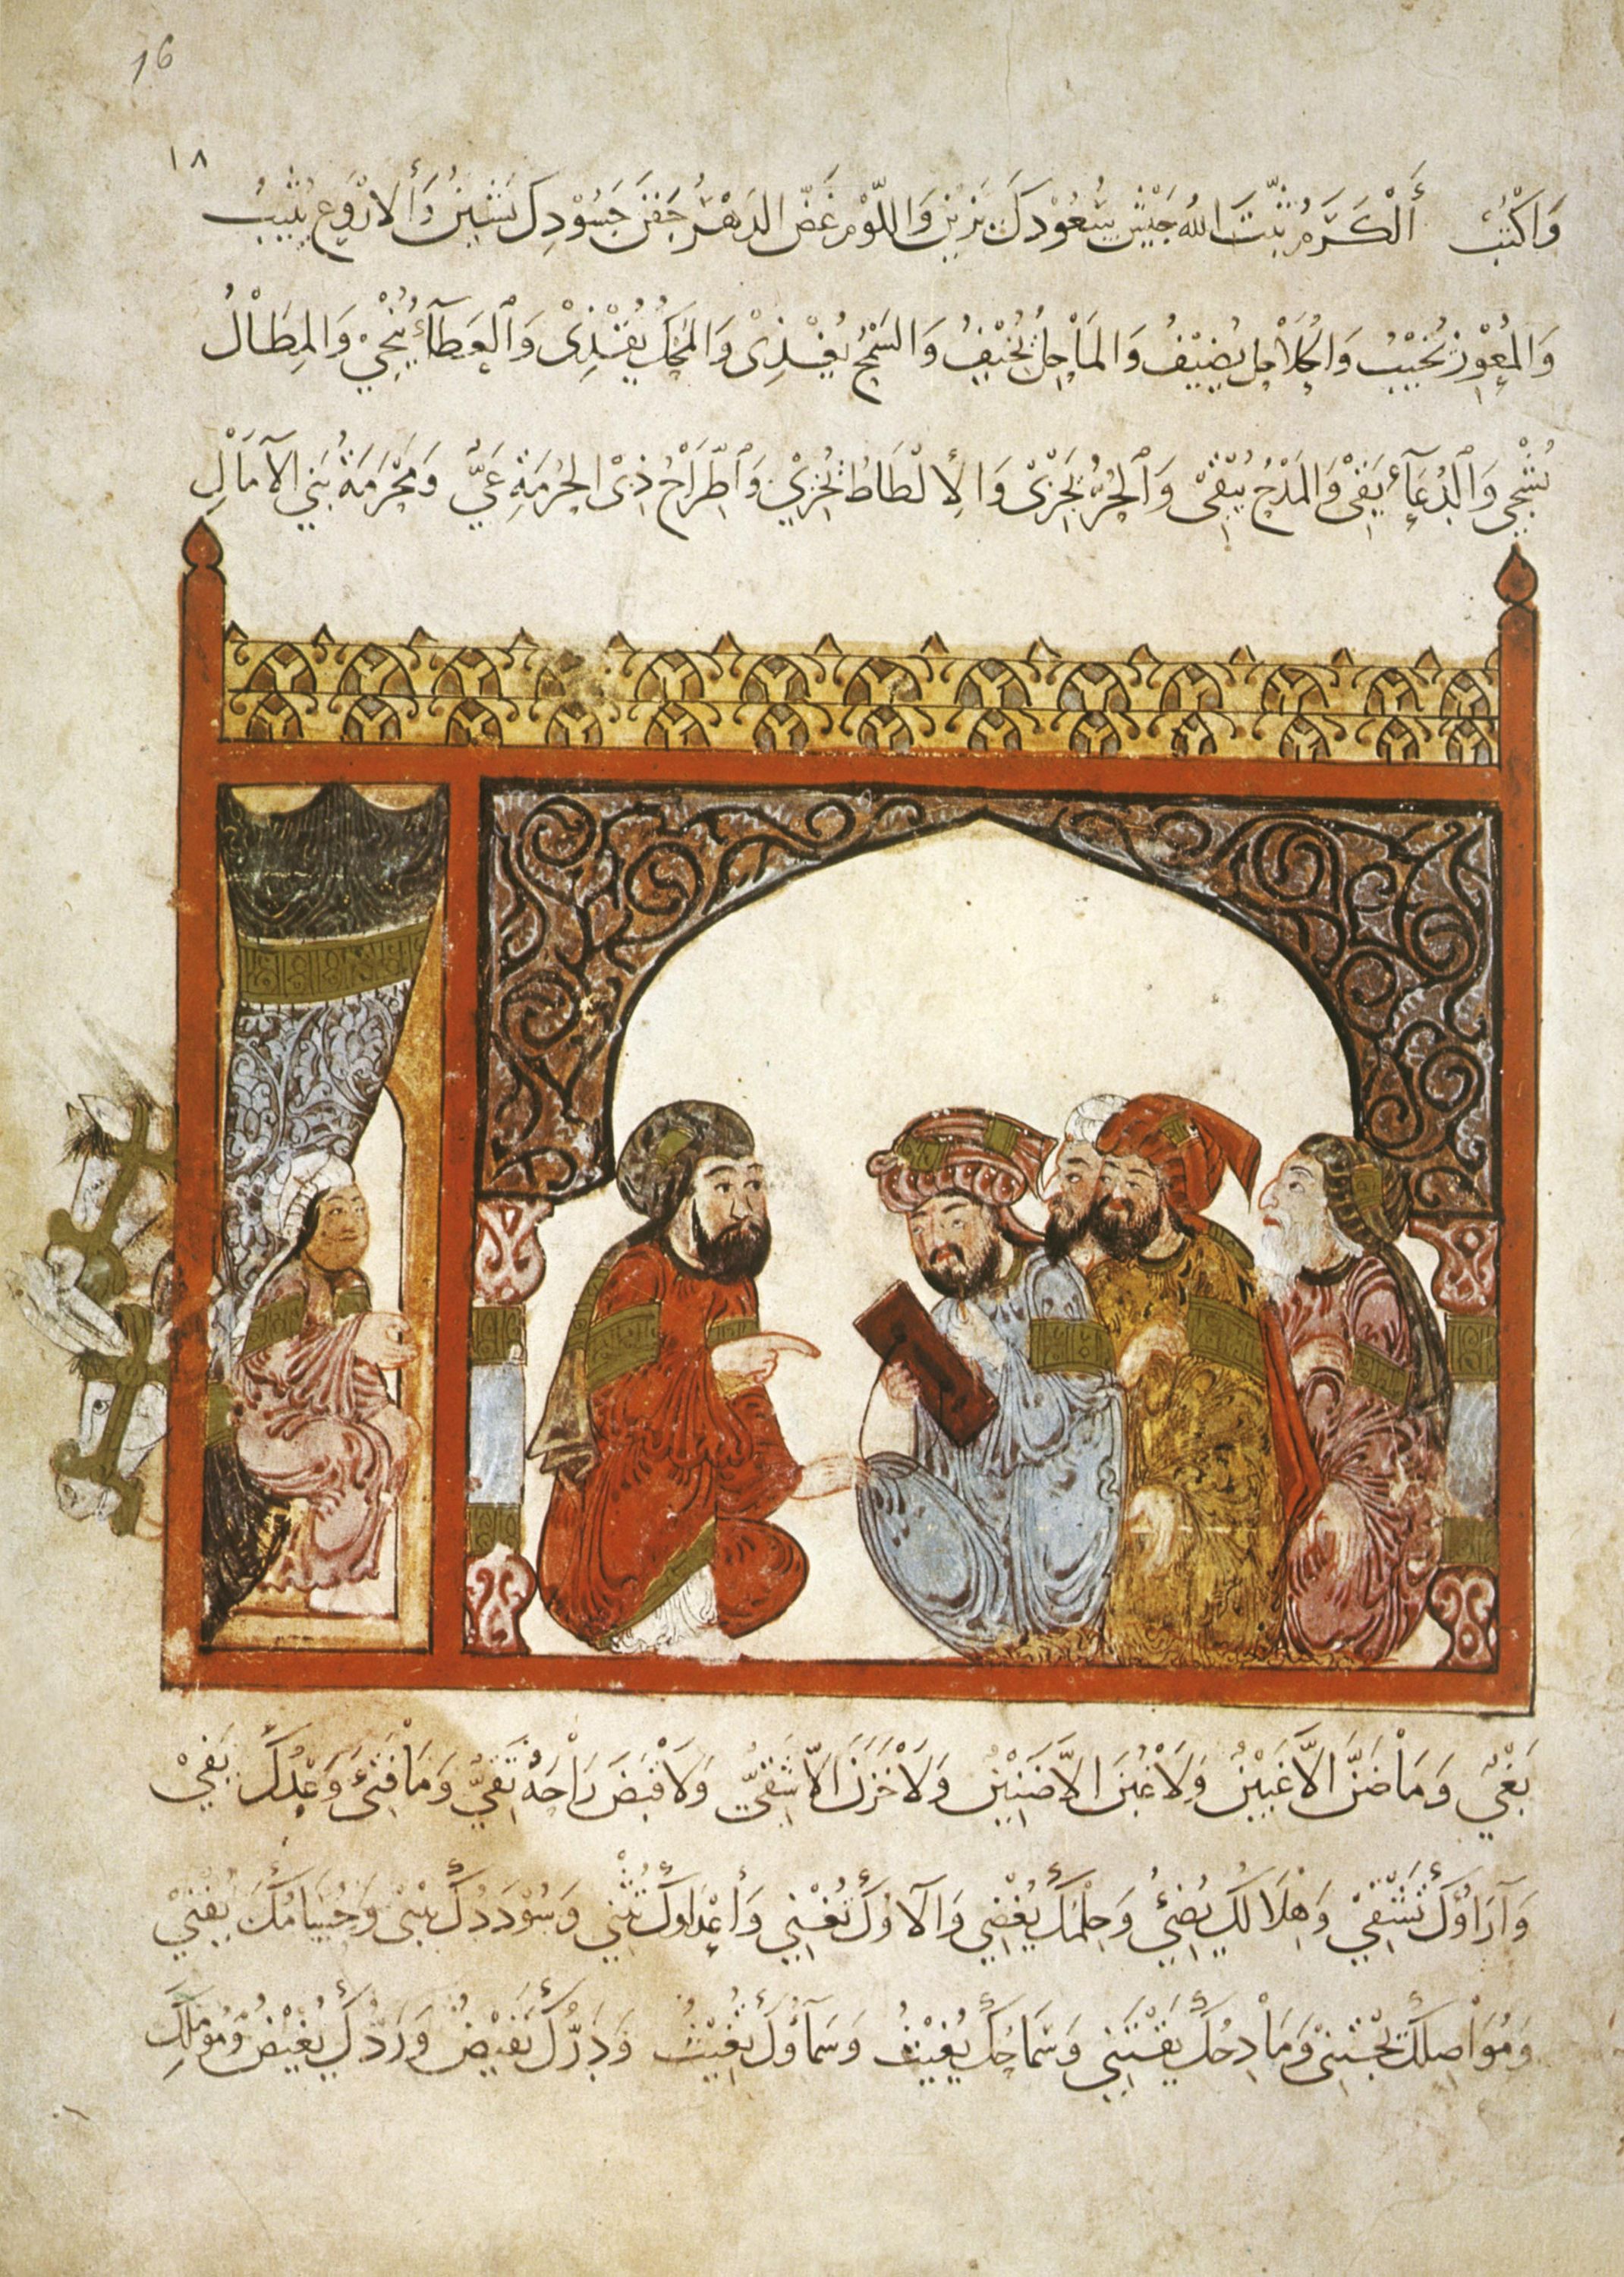 16
١٨
وَاكْتُبْ أَلْكَرَمُ ثَبَّتَ اللهُ جَيْشَ سُعُوْدِكَ يَزِيْنُ وَاللَّوْمُ غَضَّ الدَهْرُ جَفْنَ حَسُوْدِكَ يَشِيْنُ وَأَلاَرْوَعُ يُثِيبُ
وَالمُعْوِرُ يُخَيِّبُ وَالحُلاَحِلُ يُضِيْفُ وَالمَاْحِلُ يُخِيْفُ وَالسَّمْحُ يُغْذِيْ وَالمَحْكُ يُقْذِيْ وَٱلعَطَآءُ يُنْجِيْ وَالمِطَاْلُ
يُشْجِي وَٱلدُعَآءُ يَقِيْ وَالمَدْحُ يُنْقِيْ وَٱلحُرُّ يَجْزِيْ وَالإِلْطَاطُ يُخْزِيْ وَٱطِّرَاْحُ ذِيْ الحُرْمَةِ غَيٌّ وَمَحْرَمَةُ بَنِي الآمَاْلِ
بَغْيٌ وَمَاْ ضَنَّ الاَّ غَبِيْنٌ وَلاَ غُبِنَ الاَّ ضَنِيْنٌ وَلاَ خَزَنَ الاَّ شَقِيٌّ وَلاَ قَبَضَ رَاْحَهُ تَقِيٌّ وَمَاْ فَتِئَ وَعْدُكَ يَفِيْ
وَآرَاؤُكَ تَشْفِيْ وَهِلاَلُكَ يُضِئُ وَحِلْمُكَ يُغْضِي وَآلاَؤُكَ تُغْنِي وَأَعْدَاوُكَ تُثْنِي وَسُؤْدَدُكَ يَبْنِيْ وَحُسَامُكَ يُفْنِيْ
وَمُوَاْصِلُكَ يَجْتَنِيْ وَمَاْدِحُكَ يَقْتَنِي وَسَمَاحُكَ يُغِيْثُ وَسَمَآؤُكَ تُغِيْثُ وَدَرُّكَ يَفِيْضُ وَرَدُّكَ يُغِيْضُ وَمُؤَمِّلُكَ